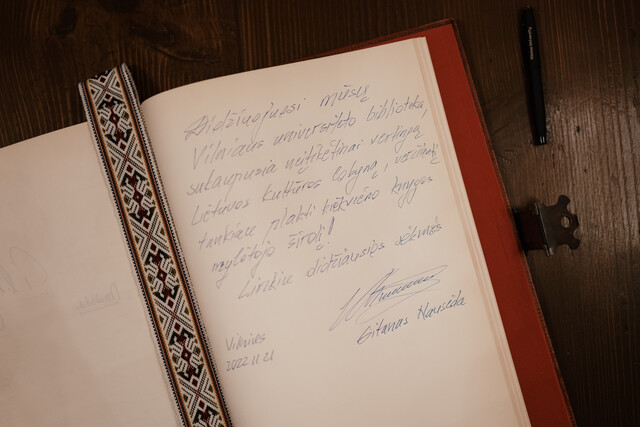 Didžiuojuosi mūsų
Vilniaus universiteto biblioteka,
sukaupusia neįtikėtinai vertingą
Lietuvos kultūros lobyną, verčiantį
tankiau plakti kiekvieno knygos
mylėtojo širdį!
Linkiu didžiausios sėkmės
Gitanas Nausėda
Vilnius
2022 11 21